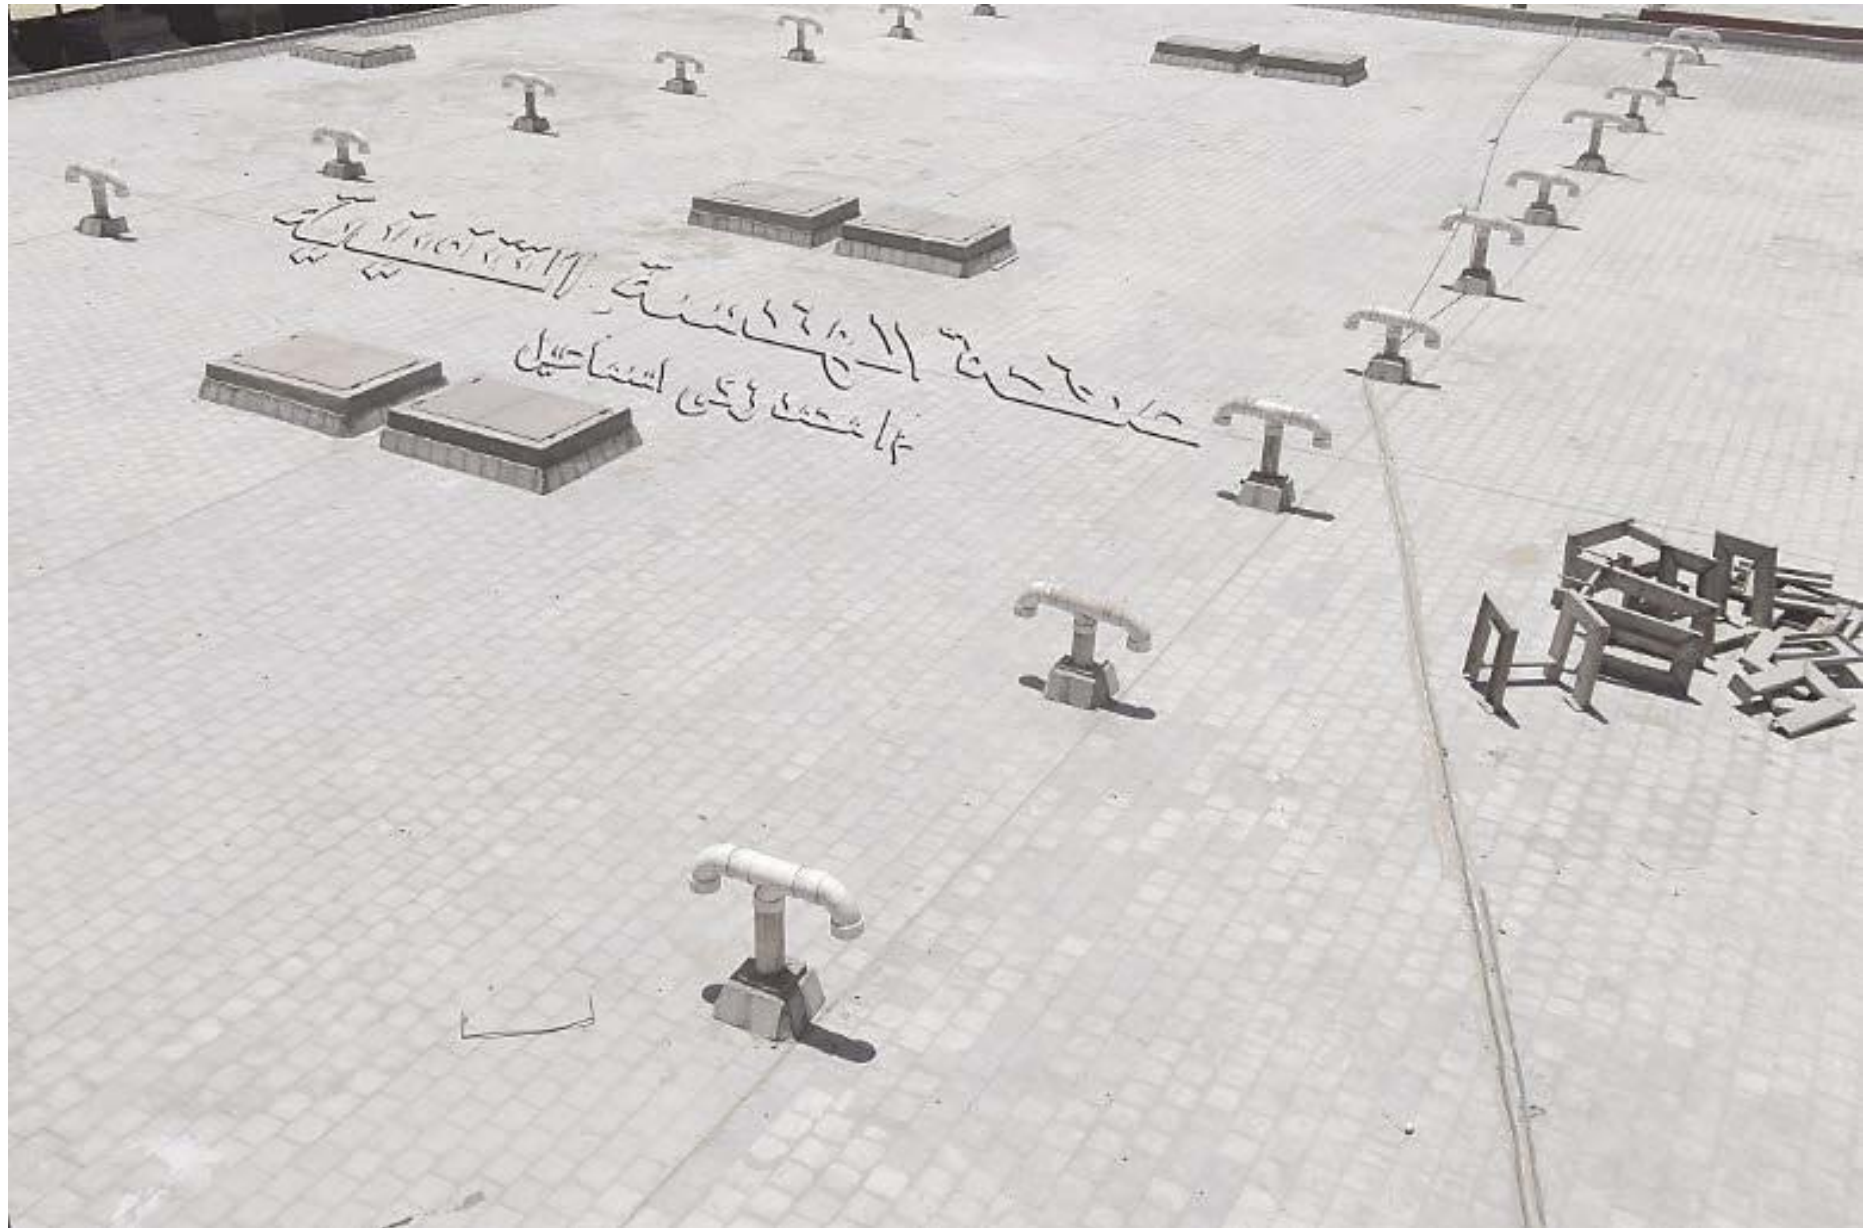 صفحة الهندسة التنفيذية
م/ محمد زكى اسماعيل